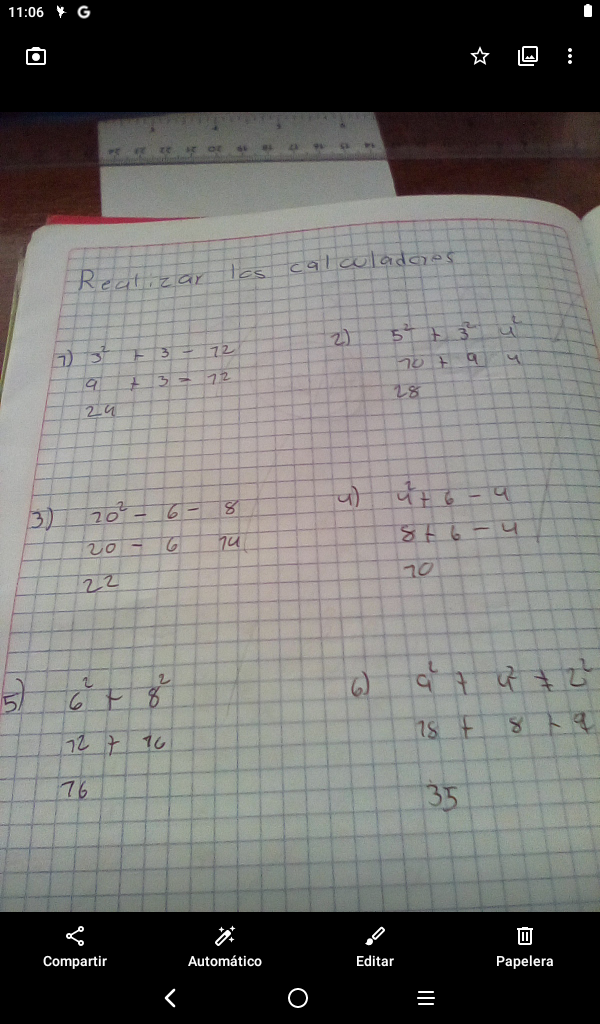 11:06
Realizar los calculadores
1) 3² + 3 - 12
9 + 3 = 12
24
2) 5² + 3² 4²
10 + 9 4
28
3) 10² - 6 - 8
20 - 6 14
22
4) 4² + 6 - 4
8 + 6 - 4
10
5) 6² + 8²
12 + 16
76
6) 9² + 4² +
18 + 8 + 9
35
Compartir
Automático
Editar
Papelera